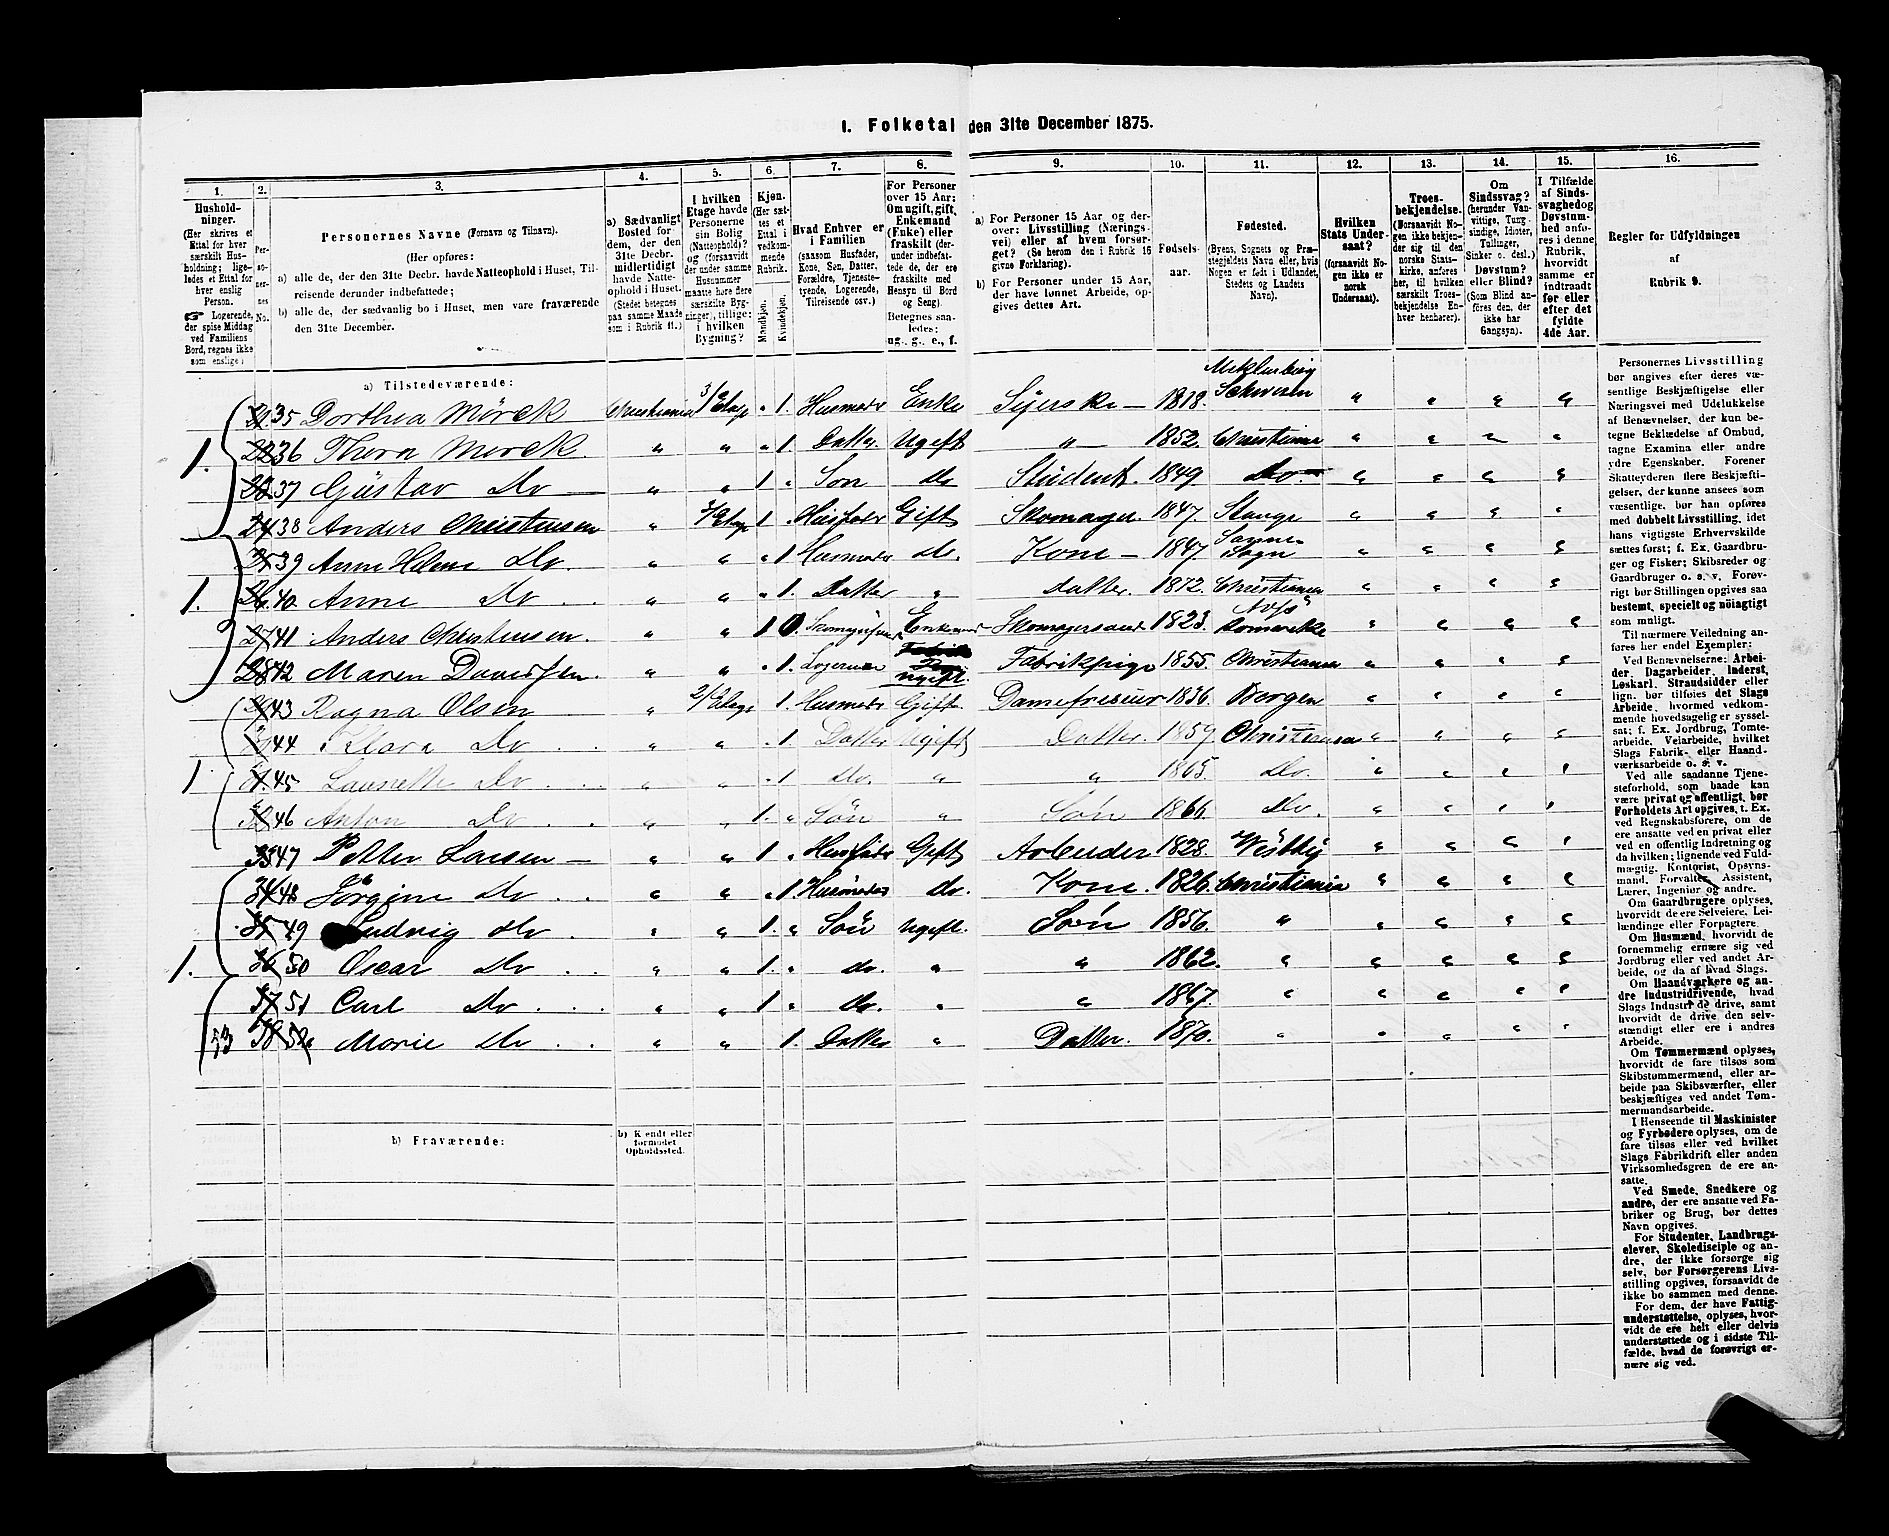 I. Folketal den 31te December 1875.
1. 2. 3. 4. 5. 6. 7. 8. 9. 10. 11. 12. 13. 14. 15. 16.
Hushold-
ninger.
(Her skrives et
Ettal for hver
særskilt Hus-
holdning; lige-
ledes et Ettal for
hver enslig
Person.
☞ Logerende,
der spise Middag
ved Familiens
Bord, regnes ikke
som enslige;)
Per-
so-
ner-
nes
No.
Personernes Navne (Fornavn og Tilnavn).
(Her opføres:
a) alle de, der den 31te Decbr. havde Natteophold i Huset, Til-
reisende derunder indbefattede;
b) alle de, der sædvanlig bo i Huset, men vare fraværende
den 31te December.
a) Sædvanligt
Bosted for
dem, der den
31te Decbr.
midlertidigt
havde Natte-
ophold i Huset.
(Stedet betegnes
paa samme Maade
som i Rubrik 11.)
I hvilken
Etage havde
Personerne
sin Bolig
(Natteophold)?
og (forsaavidt
der under samme
Husnummer
maatte høre flere
særskilte Byg-
ninger), tillige:
i hvilken
Bygning?
Kjøn.
(Her sæt-
tes et
Ettal i
vedkom-
mende
Rubrik.
Mandkjøn.
Kvindekjøn.
Hvad Enhver er
i Familien
(saasom Husfader,
Kone, Søn, Datter,
Forældre, Tjeneste-
tyende, Logerende,
Tilreisende osv.)
For Personer
over 15 Aar:
Om ugift, gift,
Enkemand
(Enke) eller
fraskilt (der-
under indbefat-
tede de, der ere
fraskilte med
Hensyn til Bord
og Seng)
Betegnes saa-
ledes:
ug., g., e., f.
a) For Personer 15 Aar og der-
over: Livsstilling (Nærings-
vei) eller af hvem forsør-
get? (Se herom den i Rubrik 16
givne Forklaring).
b) For Personer under 15 Aar,
der have lønnet Arbeide, op-
gives dettes Art.
Fødsels-
aar.
Fødested.
(Byens, Sognets og Præ-
stegjeldets Navn eller, hvis
Nogen er født i Udlandet,
Stedets og Landets
Navn).
Hvilken
Stats Under-
saat?
(forsaavidt No-
gen ikke er
norsk
Undersaat).
Troes-
bekjendelse.
(Forsaavidt No-
gen ikke bekjen-
der sig til den
norske Stats-
kirke, anføres
her, til hvilken
særskilt Troes-
bekjendelse En-
hver henhører).
Om
Sindssvag?
(herunder Van-
vittige, Tung-
sindige, Idioter,
Tullinger,
Sinker o. desl.)
Døvstum?
eller Blind?
(Som Blind an-
føres den, der
ikke har
Gangsyn).
I Tilfælde
af Sinds-
svaghed og
Døvstum-
hed anfø-
res i denne
Rubrik,
hvorvidt
samme er
indtraadt
før eller
efter det
fyldte
4de Aar.
Regler for Udfyldningen
af
Rubrik 9.
a) Tilstedeværende:
35 Dorthea Mörck Christiania 3/Etage " 1. Husmoder Enke Syerske — 1818. Meklenburg Schwerin " " " "
1. 36 Thora Mörck " " " 1. Datter Ugift " — 1852. Christiania " " " "
37 Gustav Do — " " 1 " Son do Student. 1849. Do. " " " "
38 Anders Christensen " 3/Etage 1 . Husfader Gift Skomager. 1847. Stange " " " "
39 Anne Helene Do. " " " 1. Husmoder do. Kone — 1847 Samme Sogn " " " "
1. 40 Anne Do . . " " " 1. Datter " datter. 1872. Christiania " " " "
41 Anders Christensen. " " 1 0. Enkemand Skomagersvend 1823. Romerike " " " "
42 Maren Davidsen. " " . 1. Logerende Ugift. Fabrikpige 1855. Christiania " " " "
43 Ragna Olsen " 2/Etage 1. Husmoder Gift Damefriseur 1836. Borgen " " " "
44 Klara Do . . . " " . 1. Datter Ugift Datter. 1859. Christiania " " " "
1. 45 Laurette Do . . . " " . 1 do. " " 1865. Do. " " " "
46 Anton Do . . " " 1. " Sön " Sön 1866. Do. " " " "
47 Petter Larsen — " " 1 " Husfader Gift Arbeider 1828. " " " "
48 Jörgine Do . . " " " 1. Husmoder do. Kone. 1826. Christiania " " " "
49 Ludvig do . " " 1. " Sön Ugift. Sön 1856. " " " " "
1. 50 Oscar Do . . " " 1. " do. " " 1862. " " " " "
51 Carl Do . . . " " 1 " do. " " 1867. " " " " "
53 Marie Do . . " " 1. Datter " Datter. 1870. " " " " "
b) Fraværende:
b) Kjendt eller
formodet
Opholdssted.
Personernes Livsstilling
bør angives efter deres væ-
sentlige Beskjæftigelse eller
Næringsvei med Udelukkelse
af Benævnelser, der kun be-
tegne Beklædelse af Ombud,
tagne Examina eller andre
ydre Egenskaber. Forener
Skatteyderen flere Beskjæfti-
gelser, der kunne ansees som
væsentlige, bør han opføres
med dobbelt Livsstilling, idet
hans vigtigste Erhvervskilde
sættes først; f. Ex. Gaardbru-
ger og Fisker; Skibsreder og
Gaardbruger o. s. v. Forøv-
rigt bør Stillingen opgives saa
bestemt, specielt og nøiagtigt
som muligt.
Til nærmere Veiledning an-
føres her endel Exempler:
Ved Benævnelserne: Arbei-
der, Dagarbeider, Inderst,
Løskarl, Strandsidder eller
lign. bør tilføies det Slags
Arbeide, hvormed vedkom-
mende hovedsagelig er syssel-
sat; f. Ex. Jordbrug, Tomte-
arbeide, Veiarbeide, hvilket
Slags Fabrik- eller Haand-
værksarbeide o. s. v.
Ved alle saadanne Tjene-
steforhold, som baade kan
være privat og offentligt, bør
Forholdets Art opgives, t. Ex.
ved Regnskabsførere, om de
ere ansatte ved en privat eller
ved en offentlig Indretning og
da hvilken; lignende ved Fuld-
mægtig, Kontorist, Opsyns-
mand, Forvalter, Assistent,
Lærer, Ingeniør og andre.
Om Gaardbrugere oplyses,
hvorvidt de ere Selveiere, Lei-
lændinge eller Forpagtere.
Om Husmænd, hvorvidt de
fornemmelig ernære sig ved
Jordbrug eller ved andet Ar-
beide, og da af hvad Slags.
Om Haandværkere og an-
dre Industridrivende, hvad
Slags Industri de drive, samt
hvorvidt de drive den selv-
stændigt eller ere i andres
Arbeide.
Om Tømmermænd oplyses,
hvorvidt de fare tilsøs som
Skibstømmermænd, eller ar-
beide paa Skibsværfter, eller
beskjæftiges ved andet Tøm-
mermandsarbeide.
I Henseende til Maskinister
og Fyrbødere oplyses, om de
fare tilsøs eller ved hvilket
Slags Fabrikdrift eller anden
Virksomhedsgren de ere an-
satte.
Ved Smede, Snedkere og
andre, der ere ansatte ved Fa-
briker og Brug, bør dettes
Navn opgives.
For Studenter, Landbrugs-
elever, Skoledisciple og an-
dre, der ikke forsørge sig
selv, bør Forsørgerens Livs-
stilling opgives, forsaavidt de
ikke bo sammen med denne.
For dem, der have Fattig-
understøttelse, oplyses, hvor-
vidt de ere helt eller delvis
understøttede og i sidste Til-
fælde, hvad de forøvrigt er-
nære sig ved.